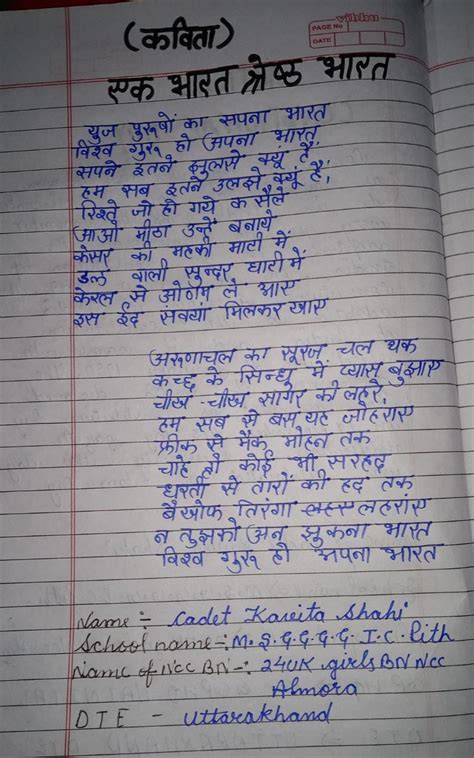 vibhu
PAGE No
DATE
(कविता)
एक भारत श्रेष्ठ भारत
युज पुरूषों का सपना भारत
विश्व गुरू हो अपना भारत
सपने इतने झुलसे क्यूं हैं,
हम सब इतने उलझे क्यूं है,
रिश्ते जो हो गये क सैले
आओ मीठा उन्हें बनाये
केसर की महकी माटी में
डल वाली सुन्दर घाटी में
केरल से ओणम ले आए
इस ईद सेवयां मिलकर खाए
अरूणाचल का सूरज चल थक
कच्छ के सिन्धु में प्यास बुझाए
चीख-चीख सागर की लहरे,
हम सब से बस यह जोहराए
फ्रीक से मैक मोहन तक
चाहे हो कोई भी सरहद
धरती से तारों की हद तक
बेखोफ तिरंगा लहराए
न तुझको अन झुकना भारत
विश्व गुरू हो अपना भारत
Name :- Cadet Kavita Shahi
School name -: M.S.G.G.G.G.I.C. Pith
Name of NCC BN -: 24UK girls BN NCC
Almora
DTE - Uttarakhand